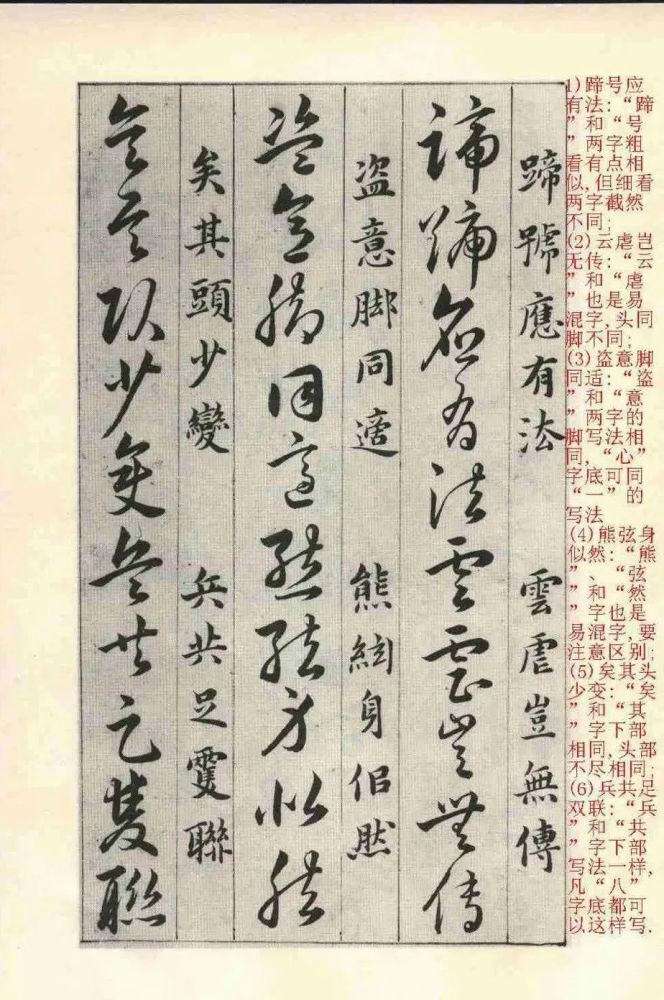 蹄號應有法 雲虐豈無傳
蹄號應有法雲虐豈無傳
盗意脚同適 熊絃身佀然
盗意脚同適熊絃身似然
矣其頭少變 兵共足雙聯
矣其頭少變兵共足雙聯
1)蹄号应
有法:“蹄
”和“号
”两字粗
看有点相
似,但细看
两字截然
不同;
(2)云虐岂
无传:“云
”和“虐
”也是易
混字,头同
脚不同;
(3)盗意脚
同适:“盗
”和“意
”两字的
脚写法相
同,“心”
字底可同
“一”的
写法
(4)熊弦身
似然:“熊
”、“弦
”和“然
”字也是
易混字,要
注意区别;
(5)矣其头
少变:“矣
”和“其
”字下部
相同,头部
不尽相同;
(6)兵共足
双联:“兵
”和“共
”字下部
写法一样,
凡“八”
字底都可
以这样写.